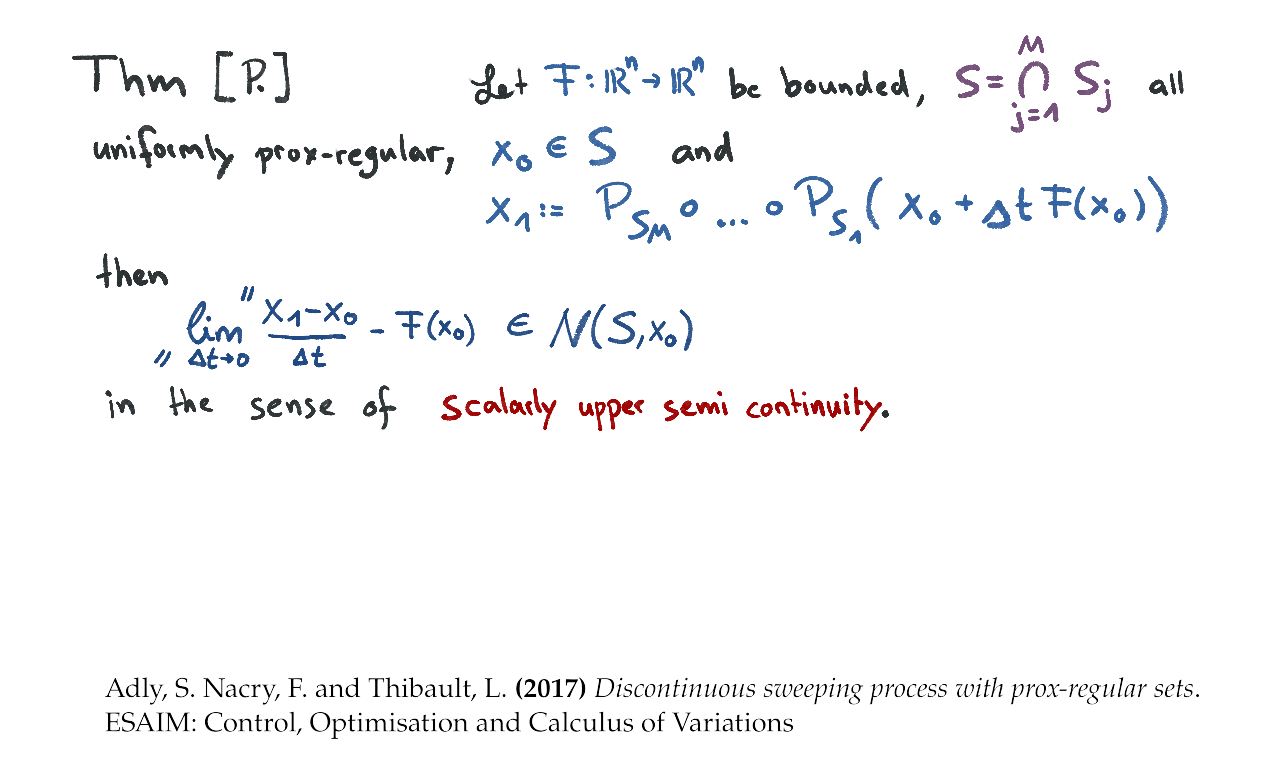 Thm [P.] Let F : ℝⁿ → ℝⁿ be bounded, S = ⋂_{j=1}^{M} S_j all
uniformly prox-regular, x₀ ∈ S and
x₁ := P_{S_M} ∘ ... ∘ P_{S_1} ( x₀ + Δt F(x₀) )
then
"lim_{Δt→0}" (x₁ - x₀)/Δt - F(x₀) ∈ N(S, x₀)
in the sense of scalarly upper semi continuity.
Adly, S. Nacry, F. and Thibault, L. (2017) Discontinuous sweeping process with prox-regular sets.
ESAIM: Control, Optimisation and Calculus of Variations